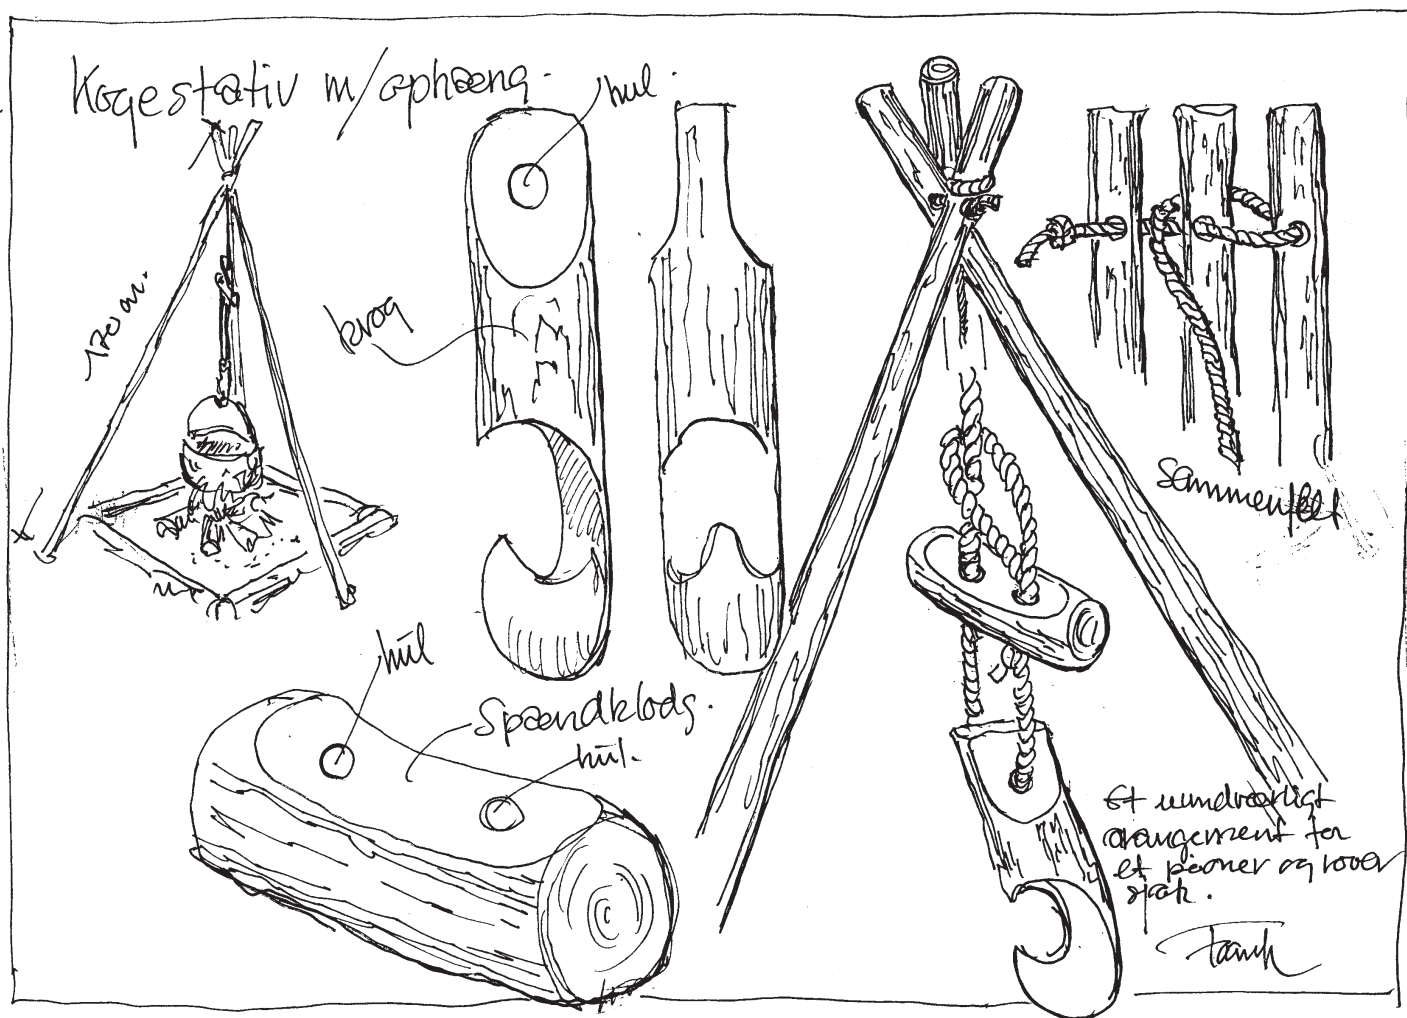 Kogestativ m/ophæng.
hul.
170 cm.
krog
Sammenfelt
hul
Spændklods.
hul.
Et uundværligt
arangement for
et pioner og rover
sjak.